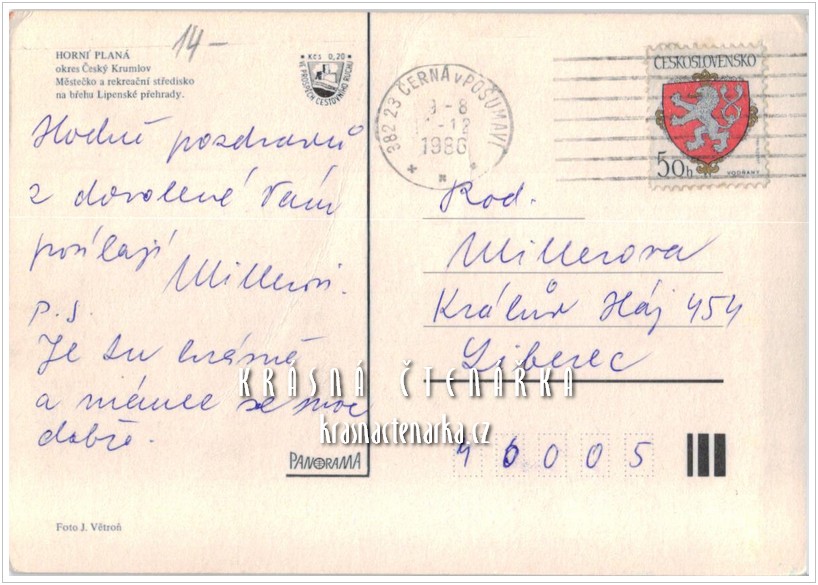 14-
HORNÍ PLANÁ
okres Český Krumlov
Městečko a rekreační středisko
na břehu Lipenské přehrady.
Kčs 0,20
VE PROSPĚCH CESTOVNÍHO RUCHU
382 23 ČERNÁ V POŠUMAVÍ
-8
-12
1986
ČESKOSLOVENSKO
50h
Hodně pozdravů
z dovolené Vám
posílají
Millerovi.
P.S.
Je tu krásně
a máme se moc
dobře.
Rod.
Millerova
Králův Háj 454
Liberec
46005
KRÁSNÁ ČTENÁŘKA
krasnactenarka.cz
PANORAMA
Foto J. Větroň